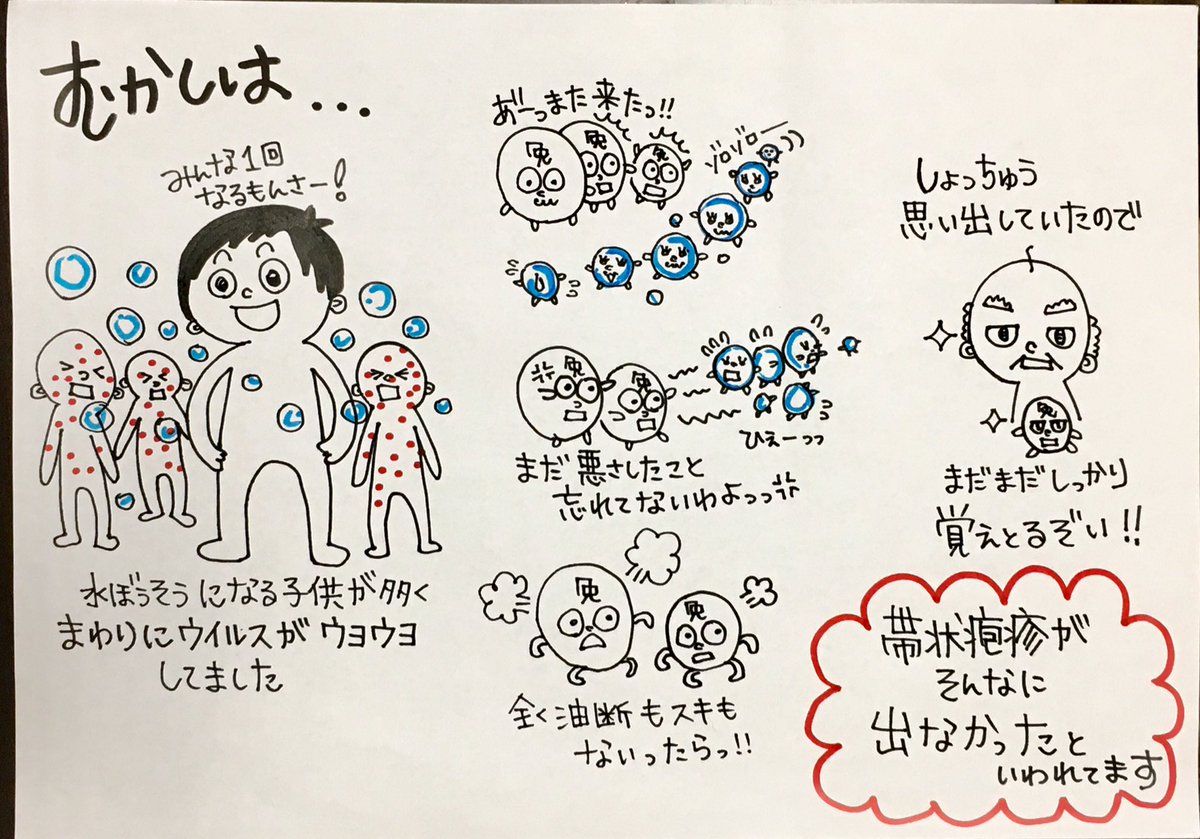 むかしは...
みんな1回
なるもんさー!
水ぼうそうになる子供が多く
まわりにウイルスがウヨウヨ
してました
あ゛ーっまた来たっ!!
免
免
免
ゾロゾロー
免
免
ひぇーっっ
まだ悪さしたこと
忘れてないわよっっ
免
免
全く油断もスキも
ないったらっ!!
しょっちゅう
思い出していたので
免
まだまだしっかり
覚えとるぞい!!
帯状疱疹が
そんなに
出なかったと
いわれてます